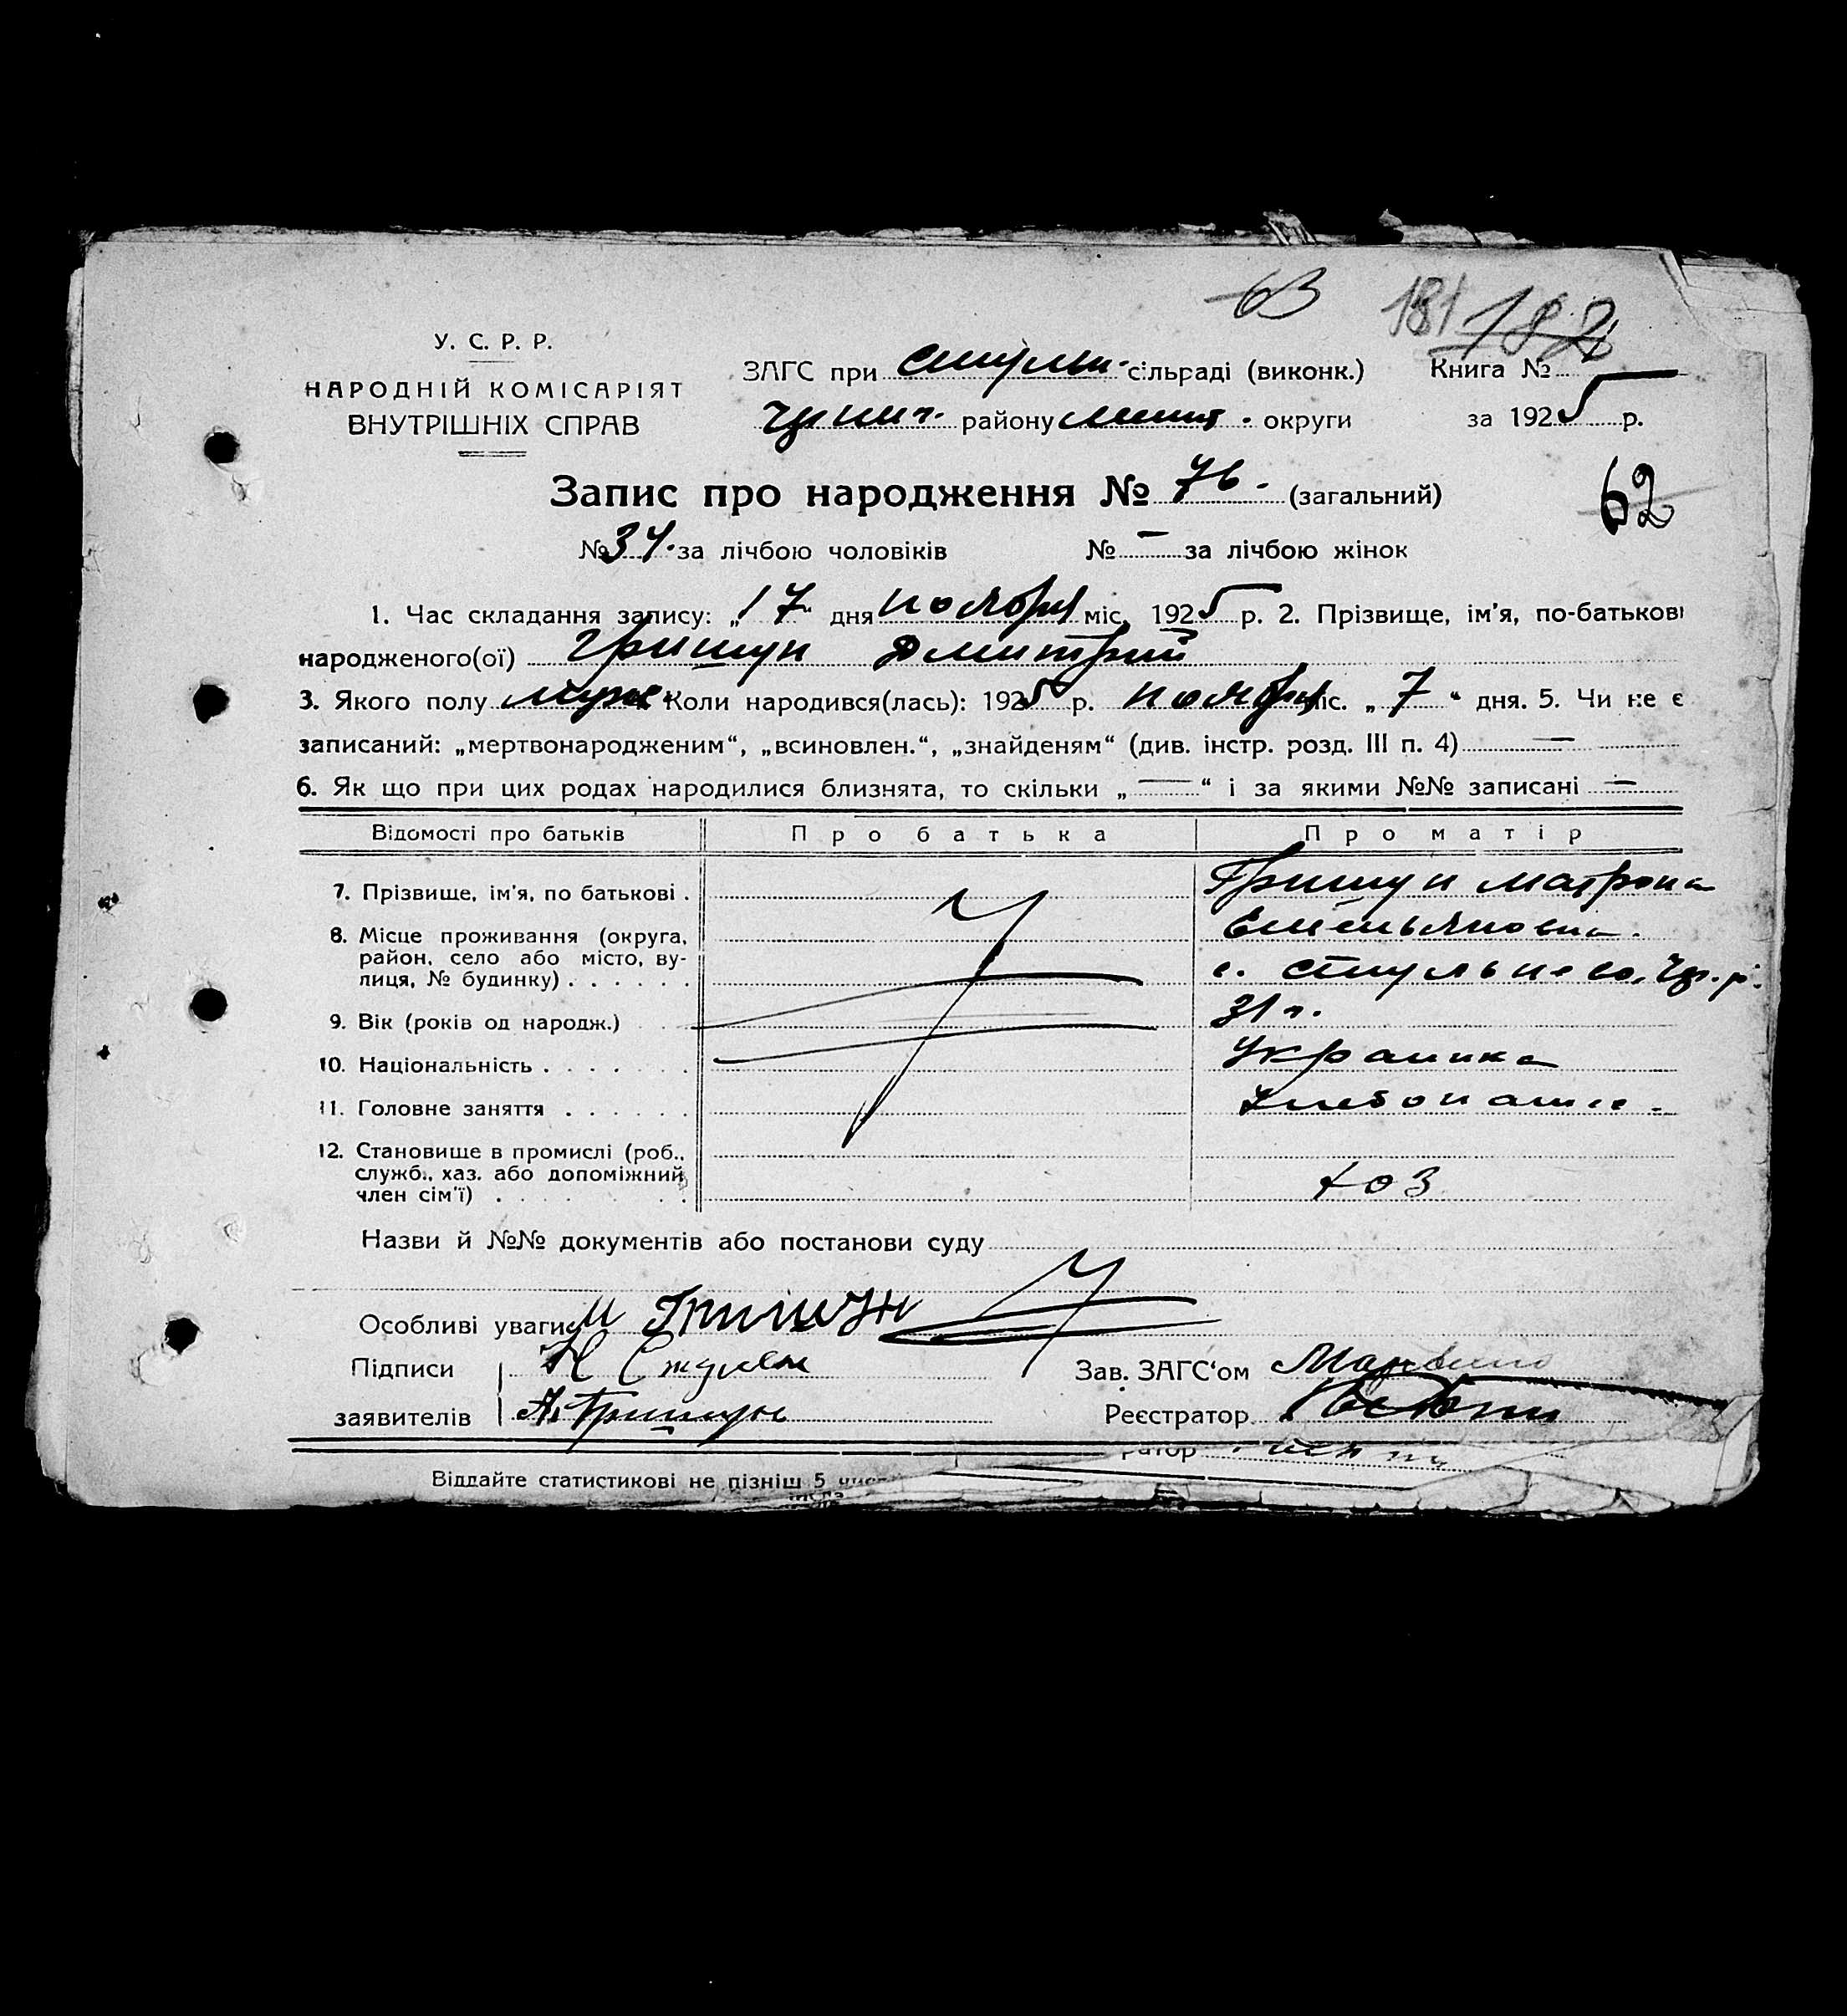 63 181 182
У. С. Р. Р.
НАРОДНІЙ КОМІСАРІЯТ
ВНУТРІШНІХ СПРАВ
ЗАГС при Стульн. сільраді (виконк.) Книга №
району округи за 1925 р.
Запис про народження № 76. (загальний)
62
№ 34. за лічбою чоловіків № — за лічбою жінок
1. Час складання запису: „17“ дня ноября міс. 1925 р. 2. Прізвище, ім'я, по-батькові
народженого(ої) Гришун Дмитрий
3. Якого полу муж Коли народився(лась): 1925 р. ноября міс. „7“ дня. 5. Чи не є
записаний: „мертвонародженим“, „всиновлен.“, „знайденям“ (див. інстр. розд. III п. 4) —
6. Як що при цих родах народилися близнята, то скільки „—“ і за якими №№ записані —
Відомості про батьків Про батька Про матір
7. Прізвище, ім'я, по батькові . Гришун Матрона
Емельяновна.
8. Місце проживання (округа,
район, село або місто, ву-
лиця, № будинку) . . . . . . с. Стульнево, Чр. р.
9. Вік (років од народж.) 31 г.
10. Національність . . . . . . . Украинка
11. Головне заняття . . . . . . Хлебопаш.
12. Становище в промислі (роб.,
служб., хаз. або допоміжний
член сім'ї) . . . . . . хоз
Назви й №№ документів або постанови суду
Особливі уваги М Гришун
Підписи Зав. ЗАГС'ом
заявителів А. Гришун Реєстратор
ратор
Віддайте статистикові не пізніш 5